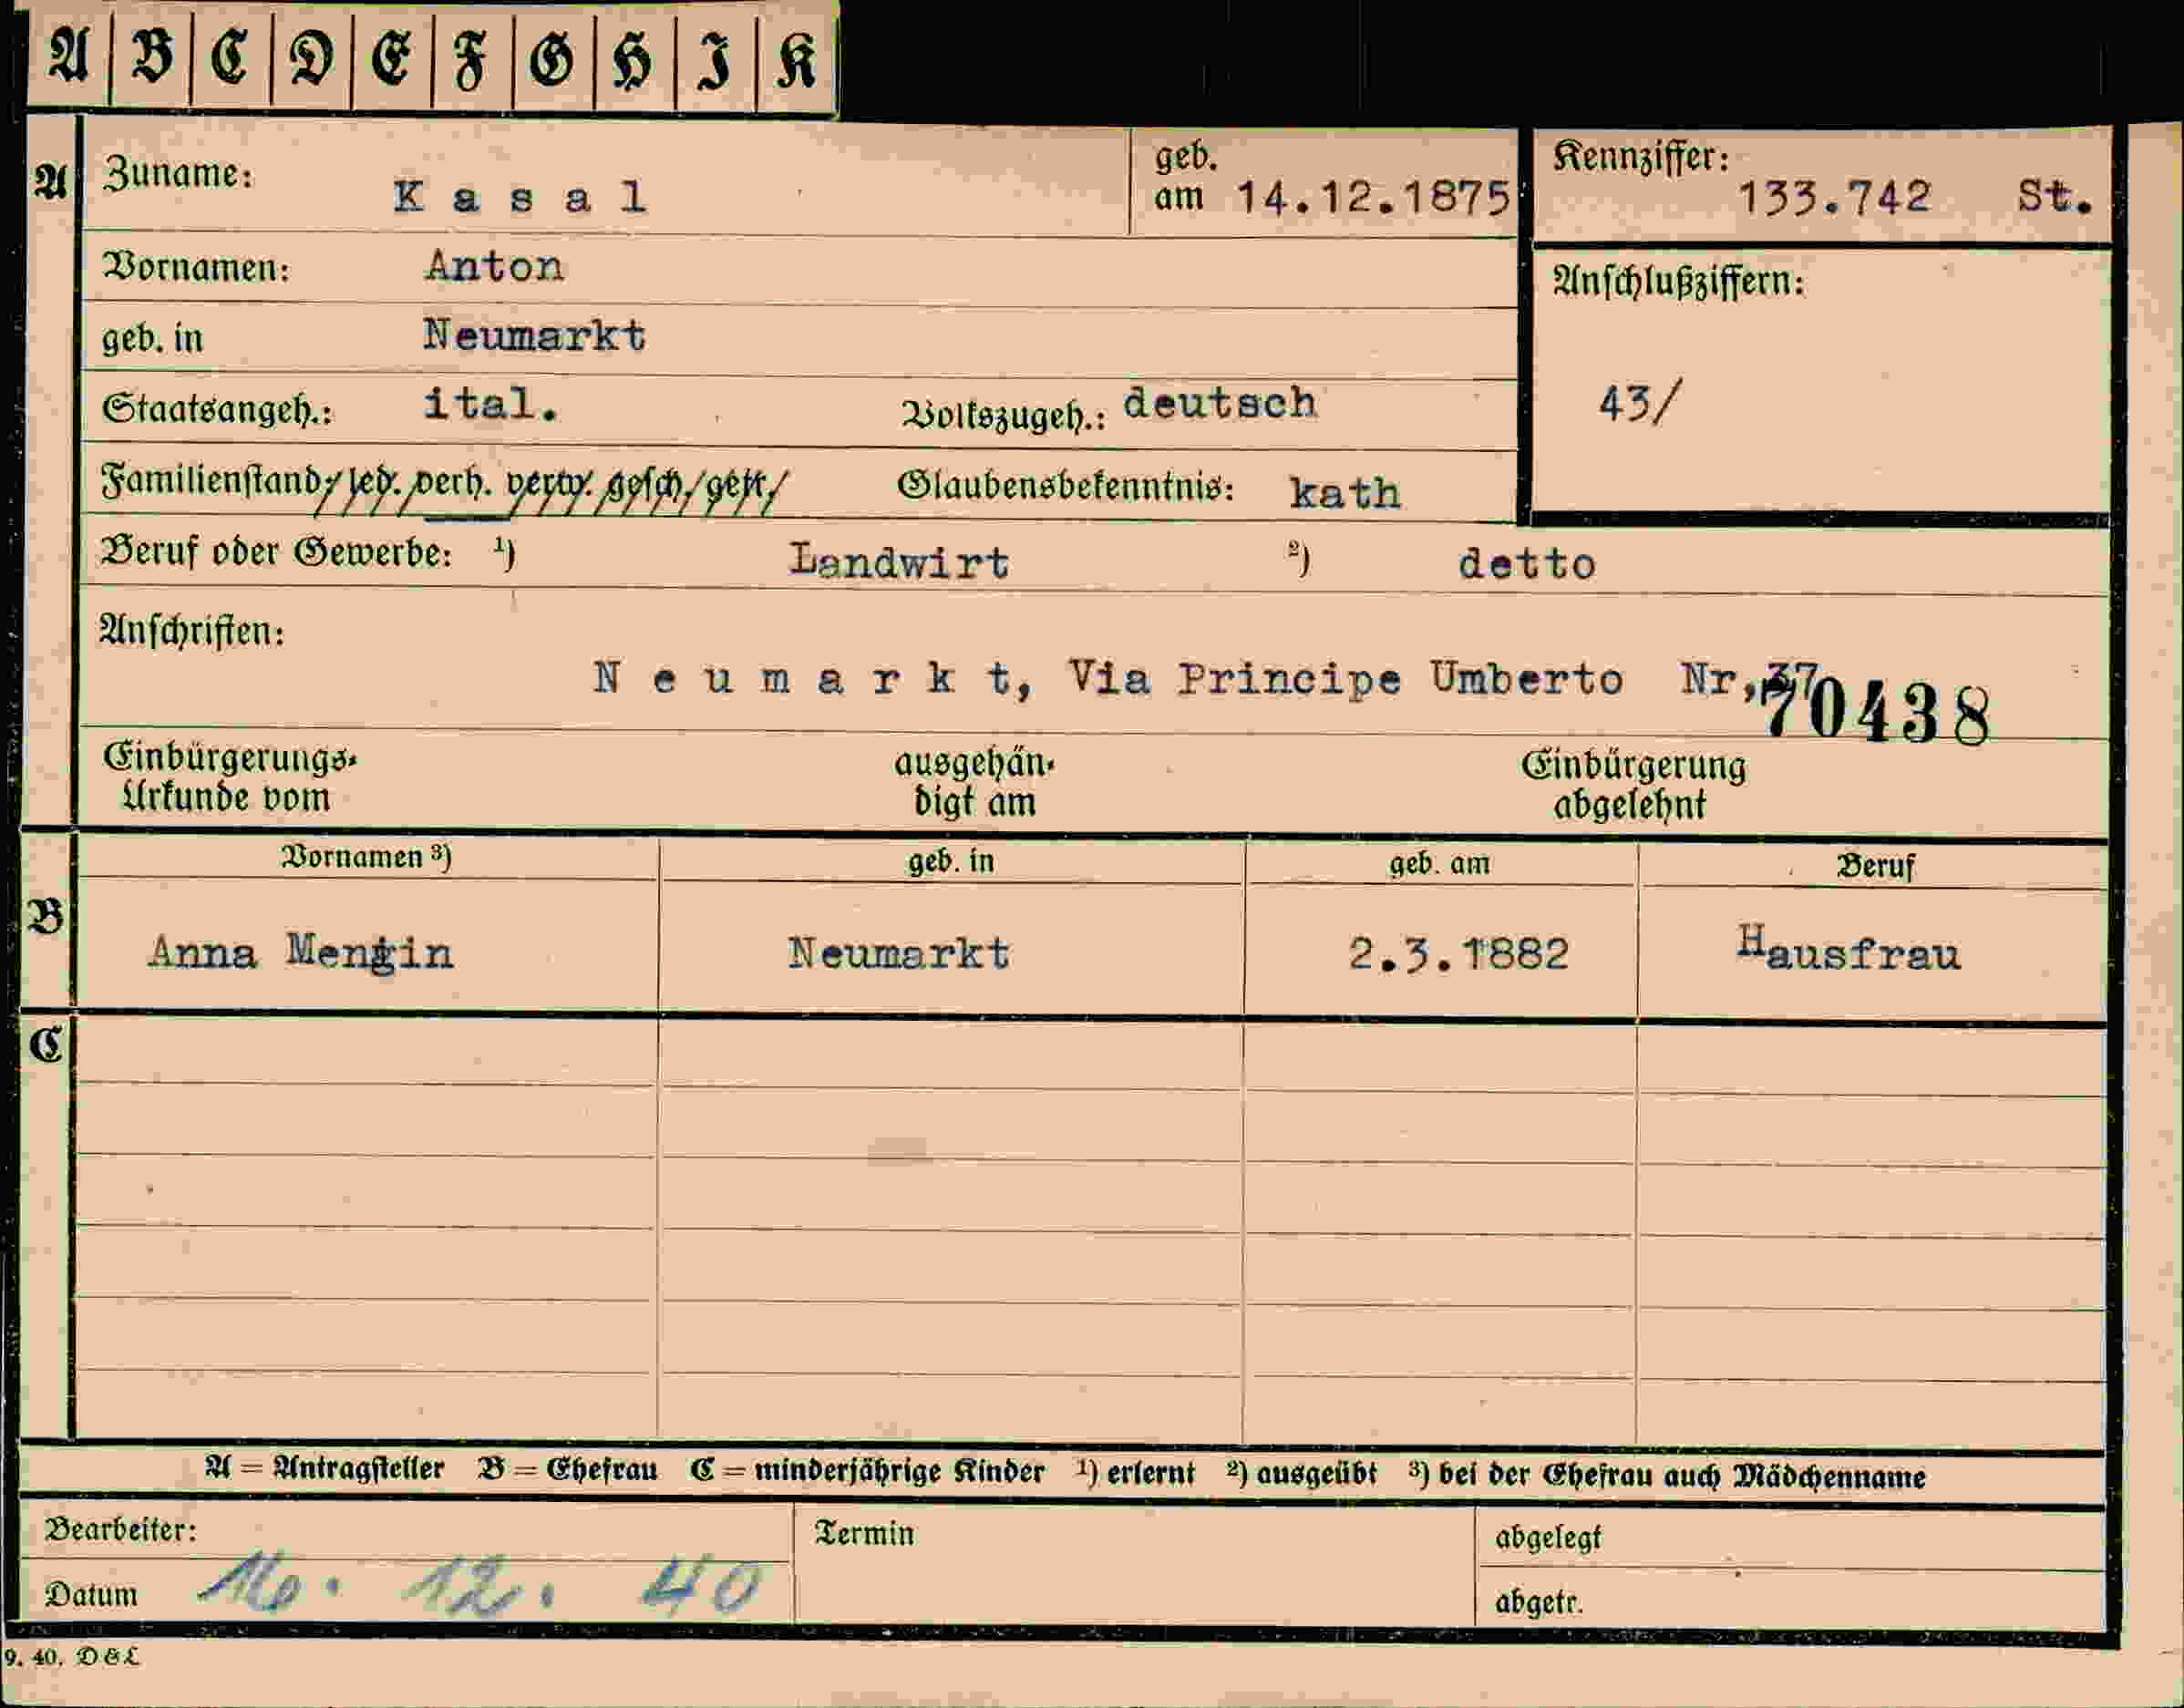 A B C D E F G H I K
A Zuname: K a s a l geb. am 14.12.1875 Kennziffer: 133.742 St.
Vornamen: Anton Anschlußziffern:
geb. in Neumarkt
Staatsangeh.: ital. Volkszugeh.: deutsch 43/
Familienstand: led. verh. verw. gesch. getr. Glaubensbekenntnis: kath
Beruf oder Gewerbe: ¹) Landwirt ²) detto
Anschriften:
N e u m a r k t, Via Principe Umberto Nr, 37
70438
Einbürgerungs- ausgehän- Einbürgerung
Urkunde vom digt am abgelehnt
Vornamen ³) geb. in geb. am Beruf
B Anna Mengin Neumarkt 2.3.1882 Hausfrau
C
A = Antragsteller B = Ehefrau C = minderjährige Kinder ¹) erlernt ²) ausgeübt ³) bei der Ehefrau auch Mädchenname
Bearbeiter: Termin abgelegt
Datum 16. 12. 40 abgetr.
9. 40. D&L